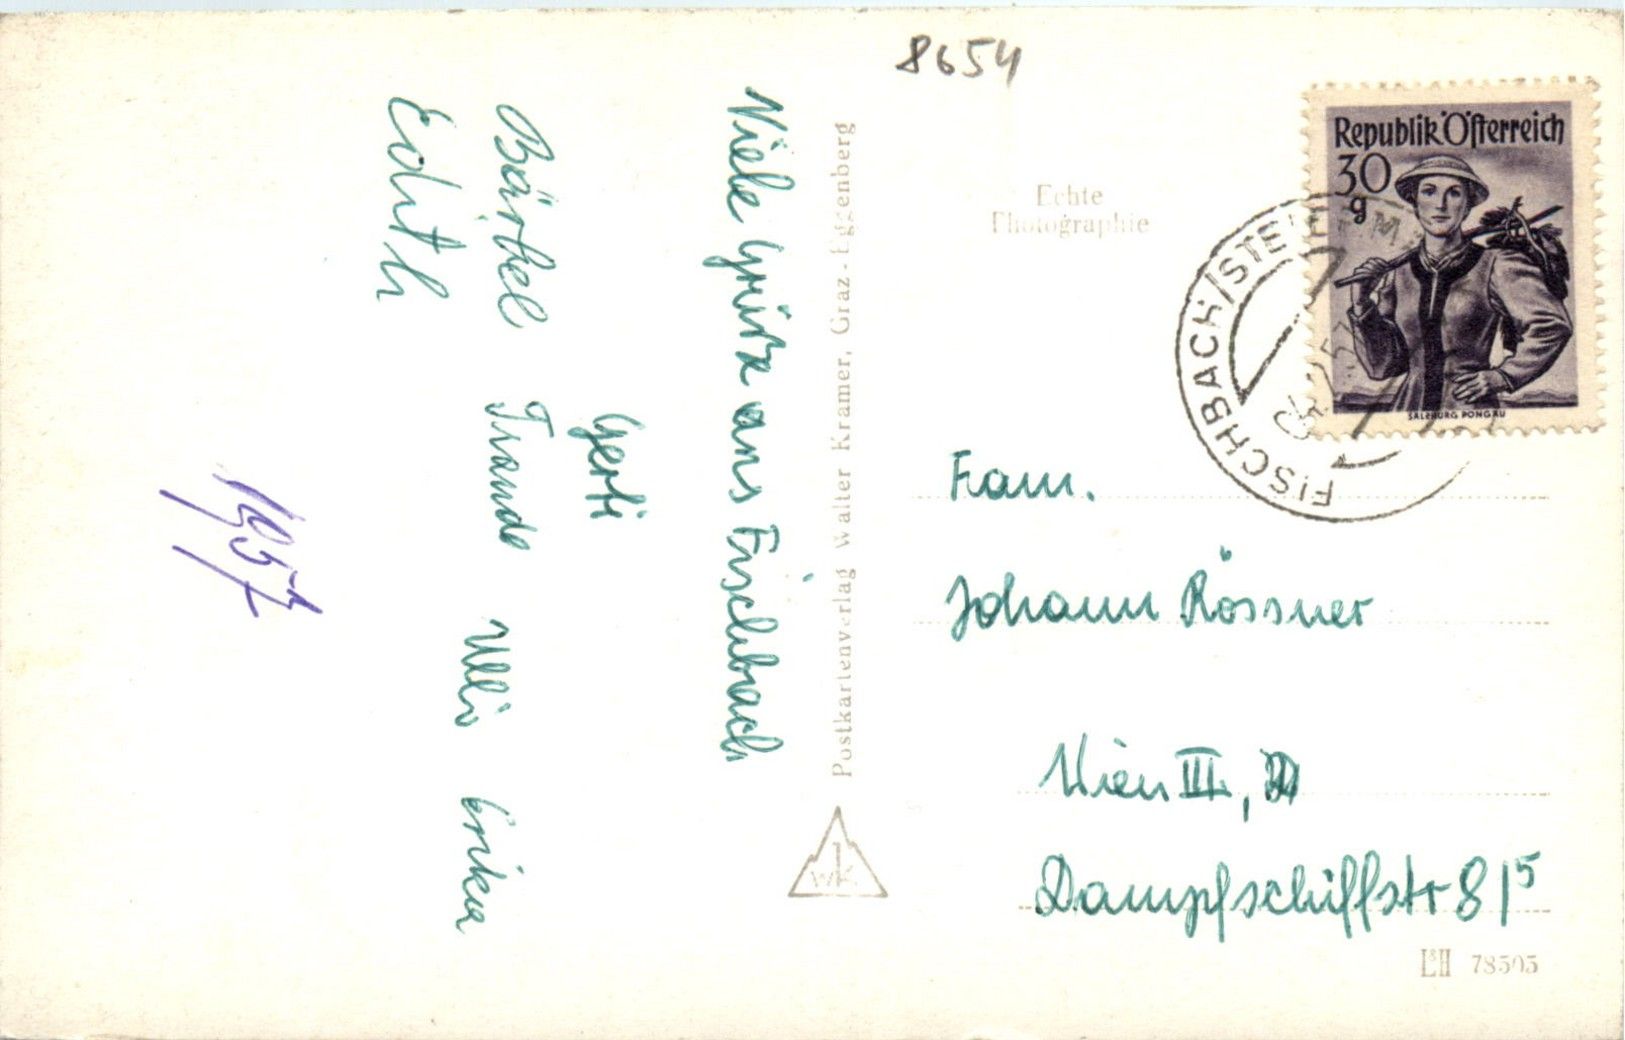 8654
Viele Grüße aus Fischbach
Gerti
Bärbel Traude Ulli Erika
Edith
1957
Postkartenverlag Walter Kramer, Graz-Eggenberg
wk
Echte
Photographie
Republik Österreich
30
g
SALZBURG PONGAU
FISCHBACH/STEIERM
Fam.
Johann Rössner
Wien III,
Dampfschiffstr 8/5
L&H 78505